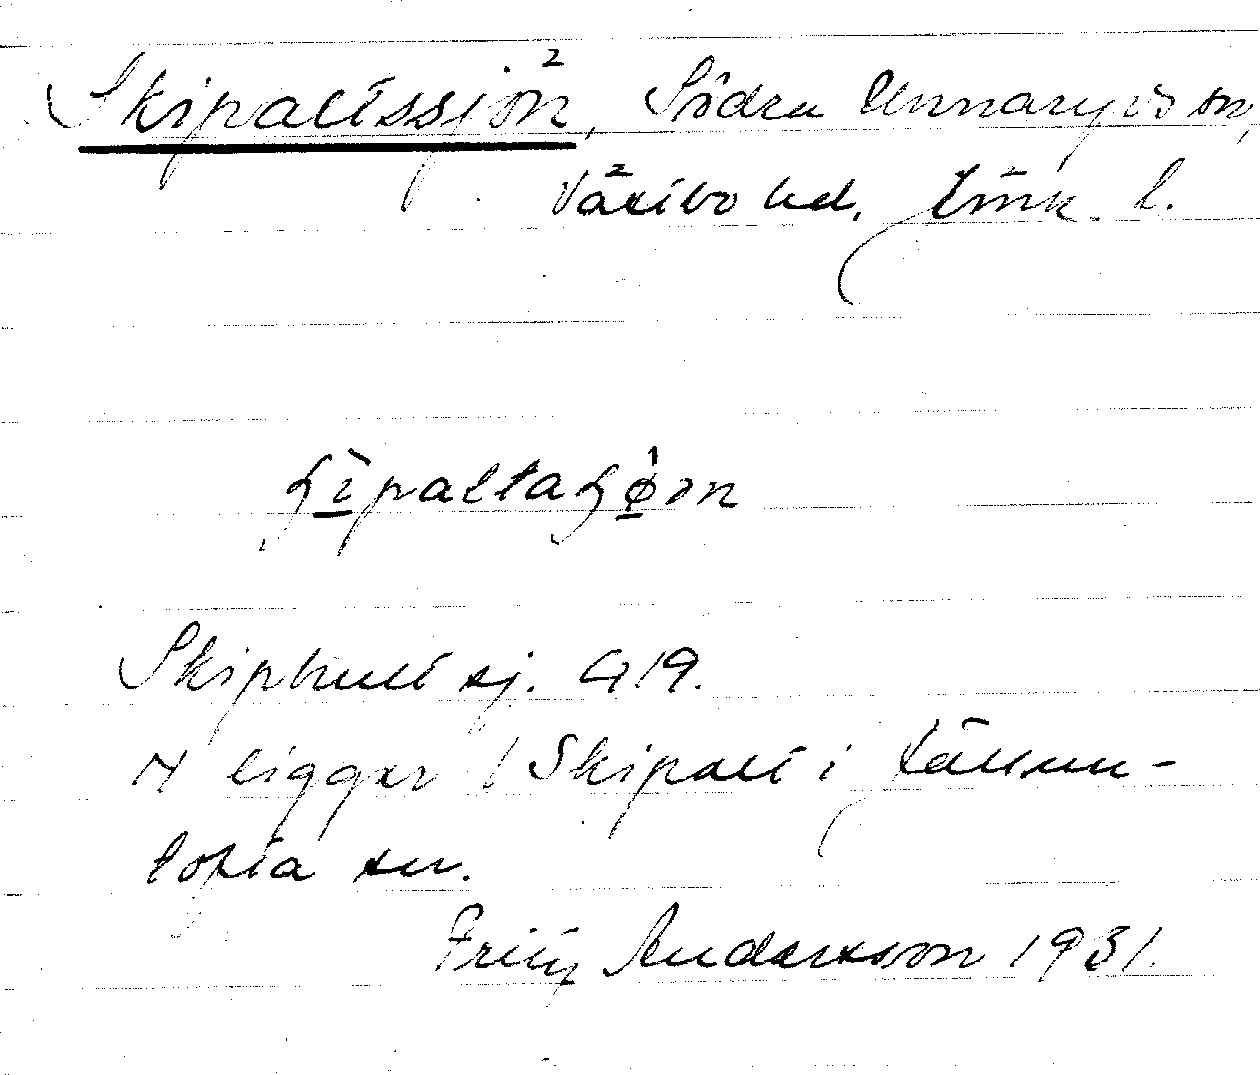 Skipaltssjön, Södra Unnaryds sn,
Västbo hd, Jönk. l.
Skiphult sj. G19.
N ligger / Skipalt i Jällun-
tofta sn.
Fritz Andersson 1931.